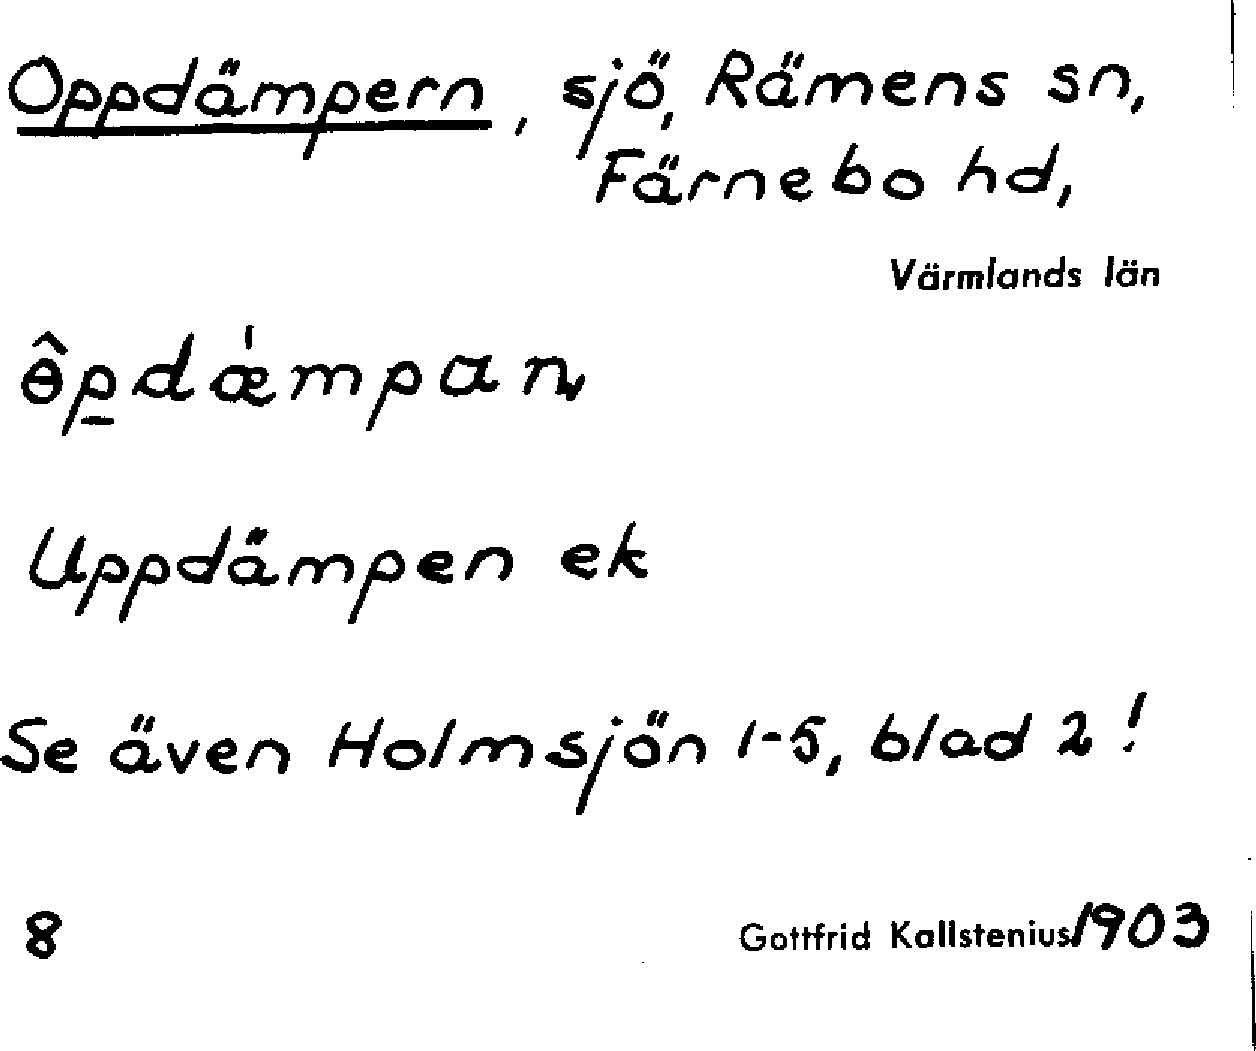 Oppdämpern, sjö, Rämens sn,
Färnebo hd,
Värmlands län
ɵ̂p̲dǽmpan
Uppdämpen ek
Se även Holmsjön 1-5, blad 2!
8 Gottfrid Kallstenius/1903